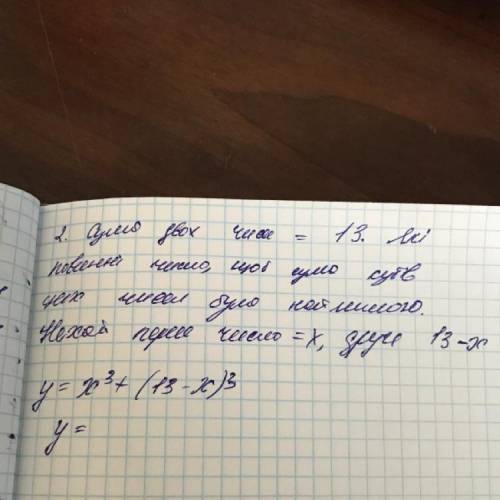 2. Сума двох чисел = 13. Які
повинні числа, щоб сума кубів
цих чисел була найменшою.
Нехай перше число = x, друге 13-x
y = x³ + (13 - x)³
y =